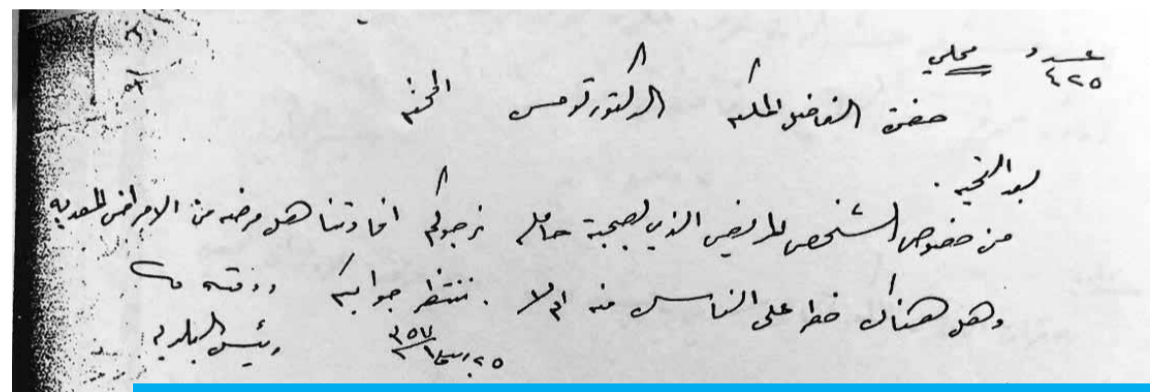 عدد محلي
٤٢٥
حضرة الفاضل الدكتور تومس المحترم
بعد التحية.
من خصوص الشخص المريض الذي بصحبة حامله نرجوكم افادتنا هل مرضه من الامراض المعديه
وهل هناك خطر على الناس منه ام لا . ننتظر جوابكم ودمتم
٢٥ ٣٥٧ رئيس البلديه